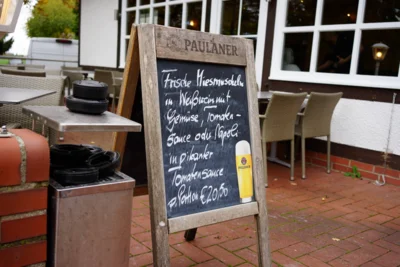 PAULANER
Frische Miesmuscheln
in Weißwein mit
Gemüse, Tomaten-
sauce oder Napoli
in pikanter
Tomatensauce
p. Portion € 20,50